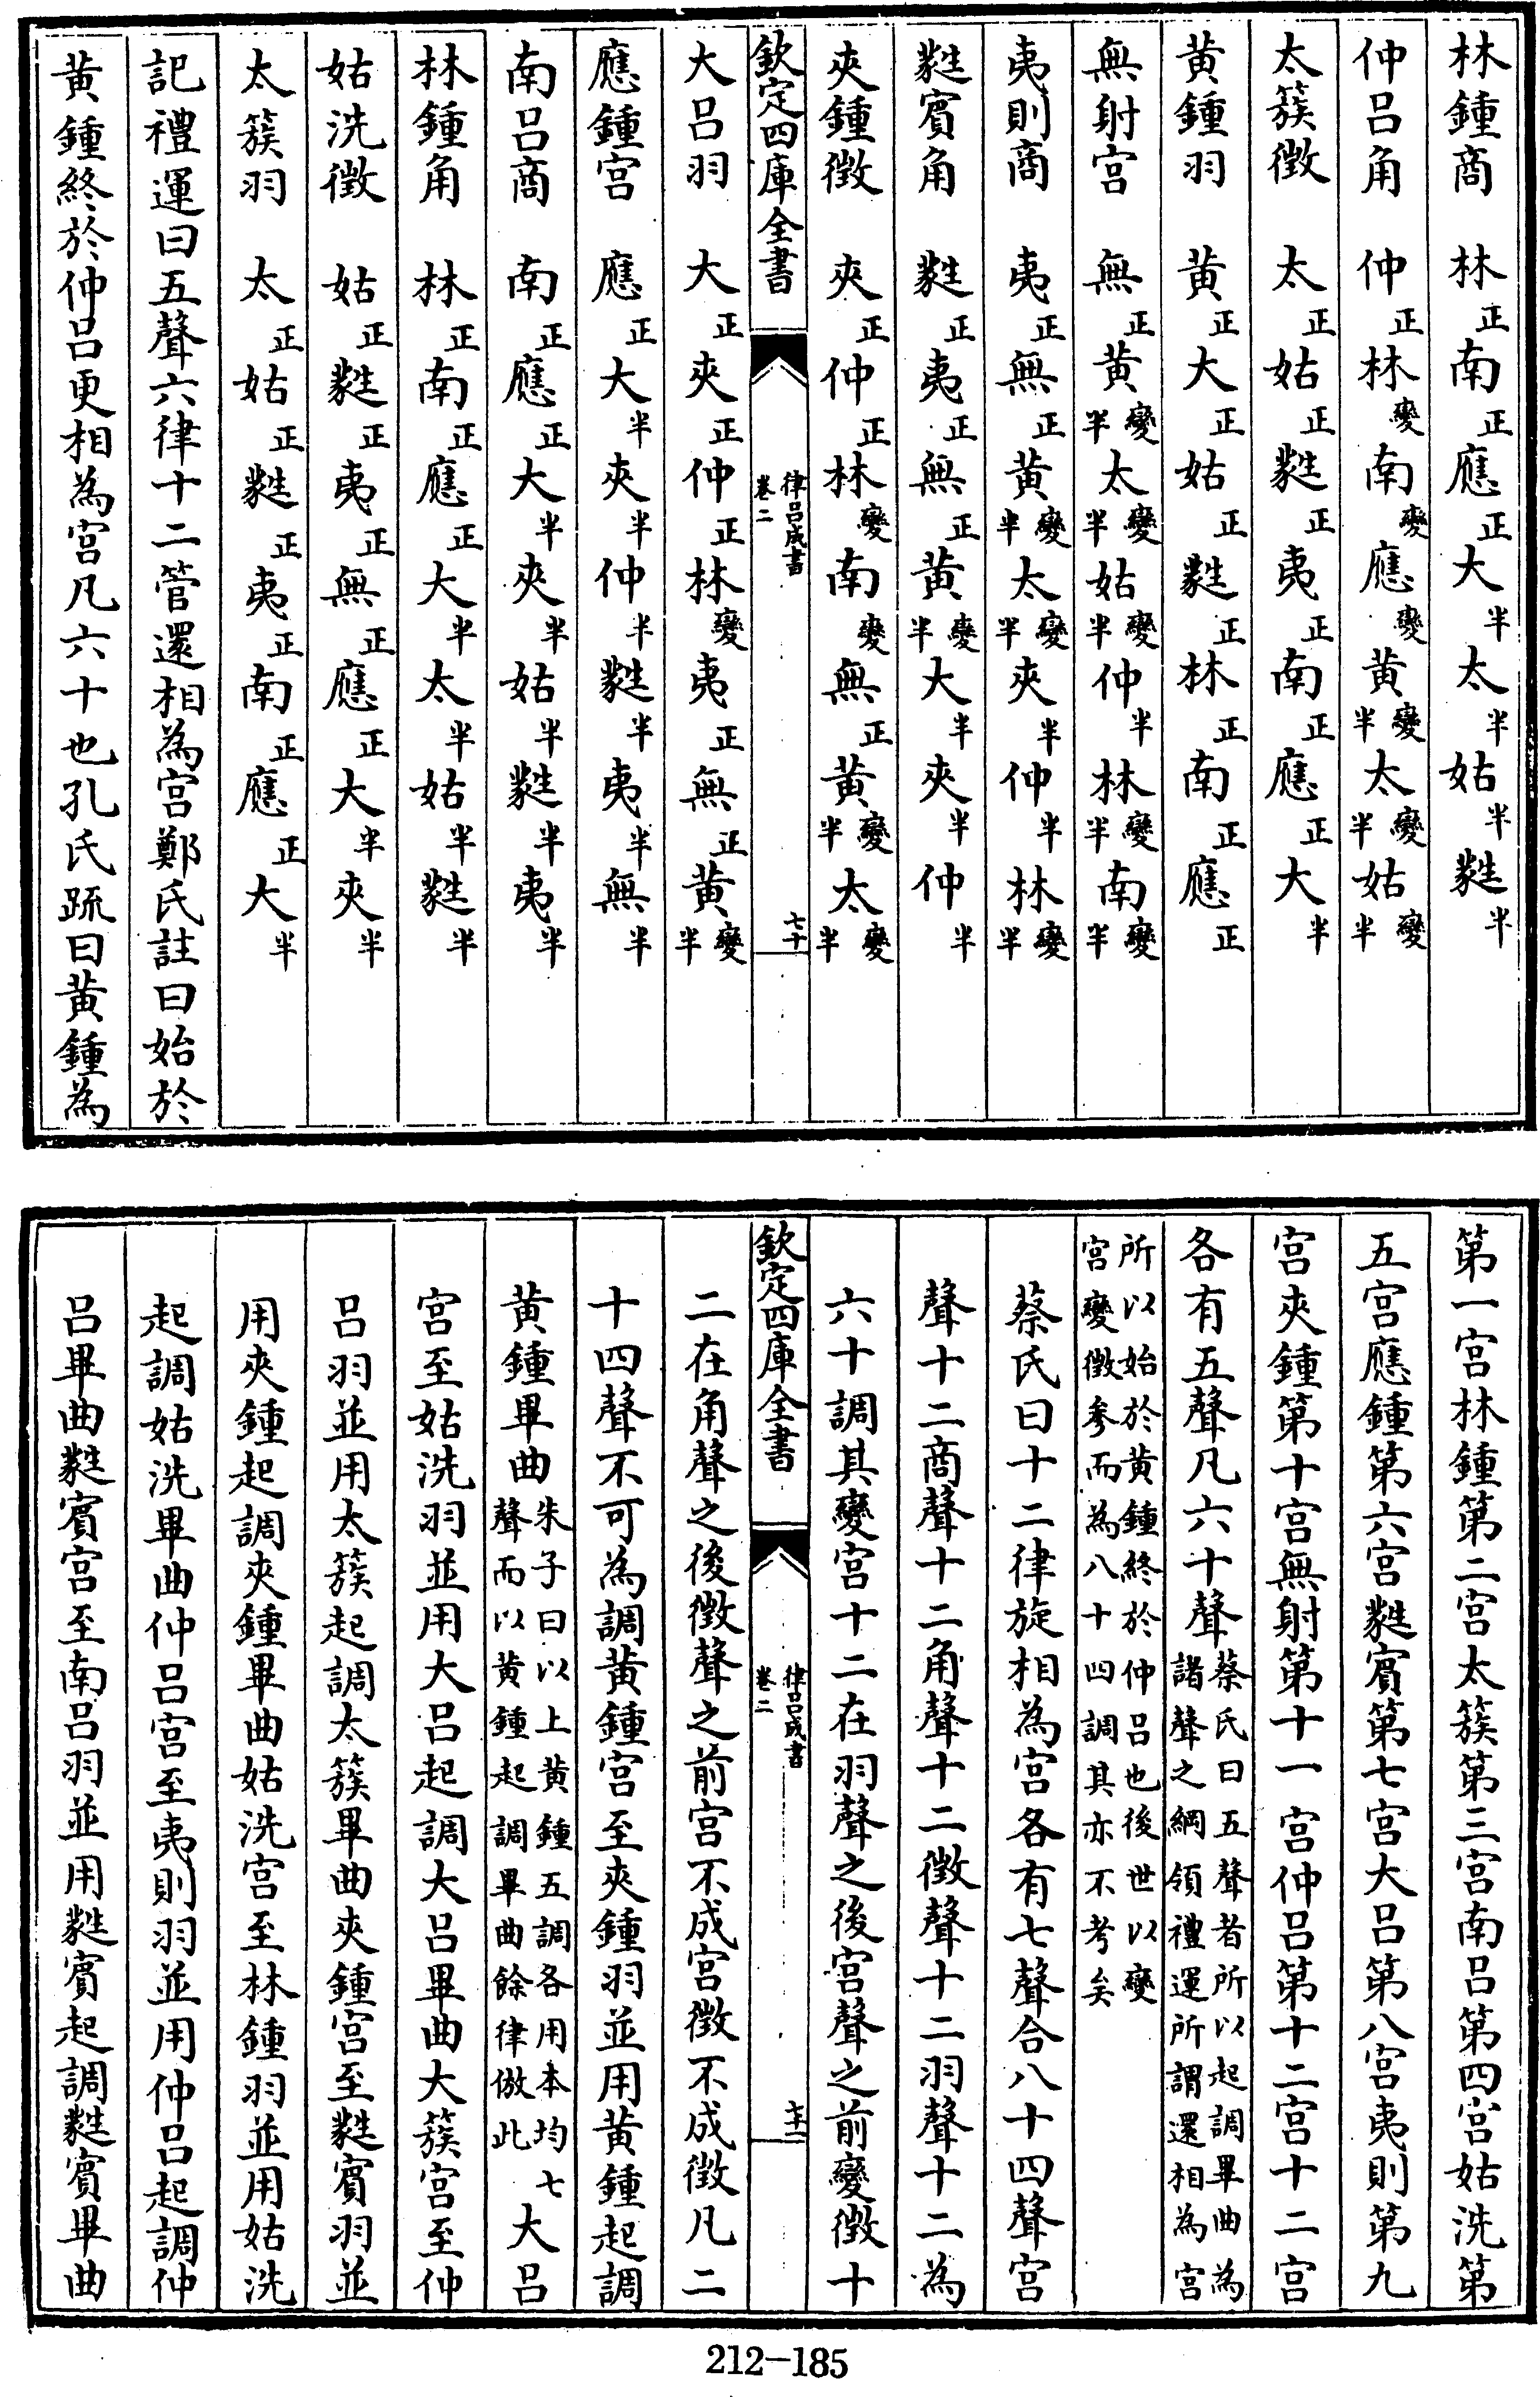 林鍾商　林正南正應正大半太半姑半蕤半
仲呂角　仲正林變南變應變黃變半太變半姑變半
太簇徵　太正姑正蕤正夷正南正應正大半
黃鍾羽　黃正大正姑正蕤正林正南正應正
無射宮　無正黃變半太變半姑變半仲半林變半南變半
夷則商　夷正無正黃變半太變半夾半仲半林變半
蕤賓角　蕤正夷正無正黃變半大半夾半仲半
夾鍾徵　夾正仲正林變南變無正黃變半太變半
欽定四庫全書　律呂成書卷二　七十
大呂羽　大正夾正仲正林變夷正無正黃變半
應鍾宮　應正大半夾半仲半蕤半夷半無半
南呂商　南正應正大半夾半姑半蕤半夷半
林鍾角　林正南正應正大半太半姑半蕤半
姑洗徵　姑正蕤正夷正無正應正大半夾半
太簇羽　太正姑正蕤正夷正南正應正大半
記禮運曰五聲六律十二管還相為宮鄭氏註曰始於
黃鍾終於仲呂更相為宮凡六十也孔氏疏曰黃鍾為
第一宮林鍾第二宮太簇第三宮南呂第四宮姑洗第
五宮應鍾第六宮蕤賓第七宮大呂第八宮夷則第九
宮夾鍾第十宮無射第十一宮仲呂第十二宮十二宮
各有五聲凡六十聲蔡氏曰五聲者所以起調畢曲為諸聲之綱領禮運所謂還相為宮
所以始於黃鍾終於仲呂也後世以變宮變徵參而為八十四調其亦不考矣
蔡氏曰十二律旋相為宮各有七聲合八十四聲宮
聲十二商聲十二角聲十二徵聲十二羽聲十二為
六十調其變宮十二在羽聲之後宮聲之前變徵十
欽定四庫全書　律呂成書卷二　七十一
二在角聲之後徵聲之前宮不成宮徵不成徵凡二
十四聲不可為調黃鍾宮至夾鍾羽並用黃鍾起調
黃鍾畢曲朱子曰以上黃鍾五調各用本均七聲而以黃鍾起調畢曲餘律倣此大呂
宮至姑洗羽並用大呂起調大呂畢曲大簇宮至仲
呂羽並用太簇起調太簇畢曲夾鍾宮至蕤賓羽並
用夾鍾起調夾鍾畢曲姑洗宮至林鍾羽並用姑洗
起調姑洗畢曲仲呂宮至夷則羽並用仲呂起調仲
呂畢曲蕤賓宮至南呂羽並用蕤賓起調蕤賓畢曲
212-185